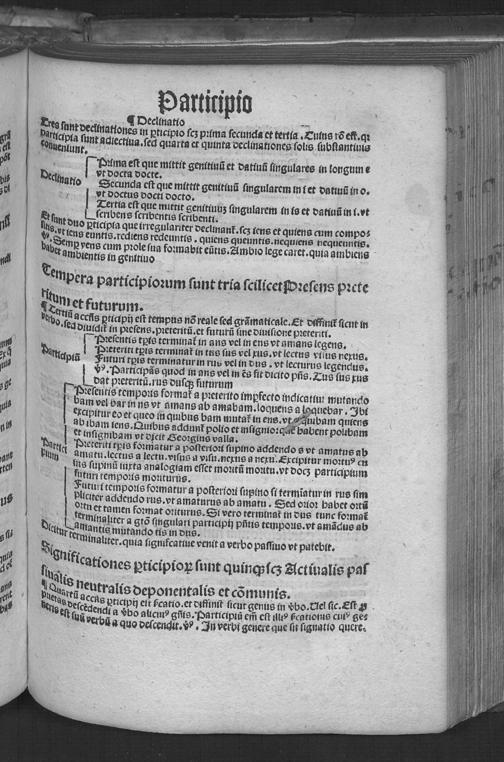 Participio
¶ Declinatio
Tres sunt declinationes in p̄ticipio scȝ prima secunda et tertia. Cuius rõ est. qꝛ
participia sunt adiectiua. sed quarta et quinta declinationes solis substantiuis
conueniunt.
Prima est que mittit genitiuũ et datiuũ singulares in longum e
vt docta docte.
Declinatio
Secunda est que mittit genitiuũ singularem in i et datiuũ in o.
vt doctus docti docto.
Tertia est que mittit genitiuuȝ singularem in is et datiuũ in i. vt
scribens scribentis scribenti.
Et sunt duo p̄ticipia que irregulariter declinant̃. scȝ iens et quiens cum compo-
sitis. vt iens euntis. rediens redeuntis. quiens queuntis. nequiens nequeuntis.
℣. Semp̱ yens cum prole sua formabit eũtis. Ambio lege caret. quia ambiens
habet ambientis in genitiuo
Tempera participiorum sunt tria scilicet Presens prete
ritum et futurum.
¶ Tertiũ accñs p̄ticipij est tempus nõ reale sed grãmaticale. Et diffinit̃ sicut in
verbo. sed diuidit̃ in presens. preteritũ. et futurũ sine diuisione preteriti.
Presentis tp̱is terminat̃ in ans vel in ens vt amans legens.
Participiũ
Preteriti tp̱is terminat̃ in tus sus vel xus. vt lectus visus nexus.
Futuri tp̱is terminatur in rus vel in dus. vt lecturus legendus.
℣. Participãs quod in ans vel in ẽs sit dicito p̃ns. Tus sus xus
dat preteritũ. rus dusqȝ futurum
Presentis temporis format̃ a preterito imp̱fecto indicatiui mutando
bam vel bar in ns vt amans ab amabam. loquens a loquebar. Ibi
excipitur eo et queo in quibus bam mutat̃ in ens. vt quibam quiens
ab ibam iens. Quibus addunt̃ polio et insignior qꝛ habent polibam
et insignibam vt dicit Georgius valla.
Partici
pium
Preteriti tp̱is formatur a posteriori supino addendo s vt amatus ab
amatu. lectus a lectu. visus a visu. nexus a nexu. Excipitur mortuꝰ cu
ius supinũ iuxta analogiam esset moritũ moritu. vt docȝ participium
futuri temporis moriturus.
Futuri temporis formatur a posteriori supino si termiatur in rus sim
pliciter addendo rus. vt amaturus ab amatu. Sed orior habet ortũ
ortu et tamen format oriturus. Si vero terminat̃ in dus tunc format̃
terminaliter a gtõ singulari participij p̃ntis temporis. vt amãdus ab
amantis mutando tis in dus.
Dicitur terminaliter. quia significatiue venit a verbo passiuo vt patebit.
Significationes p̄ticipioꝝ sunt quinqȝ scȝ Actiualis pas
siualis neutralis deponentalis et cõmunis.
¶ Quartũ accñs p̄ticipij est ficatio. et diffinit̃ sicut genus in ṽbo. Uel sic. Est ꝓ
prietas descẽdendi a ṽbo alicuiꝰ gñis. Participiũ em̃ est illiꝰ ficationis cuiꝰ ge-
neris est suũ verbũ a quo descendit. ℣. In verbi genere que sit signatio quere.